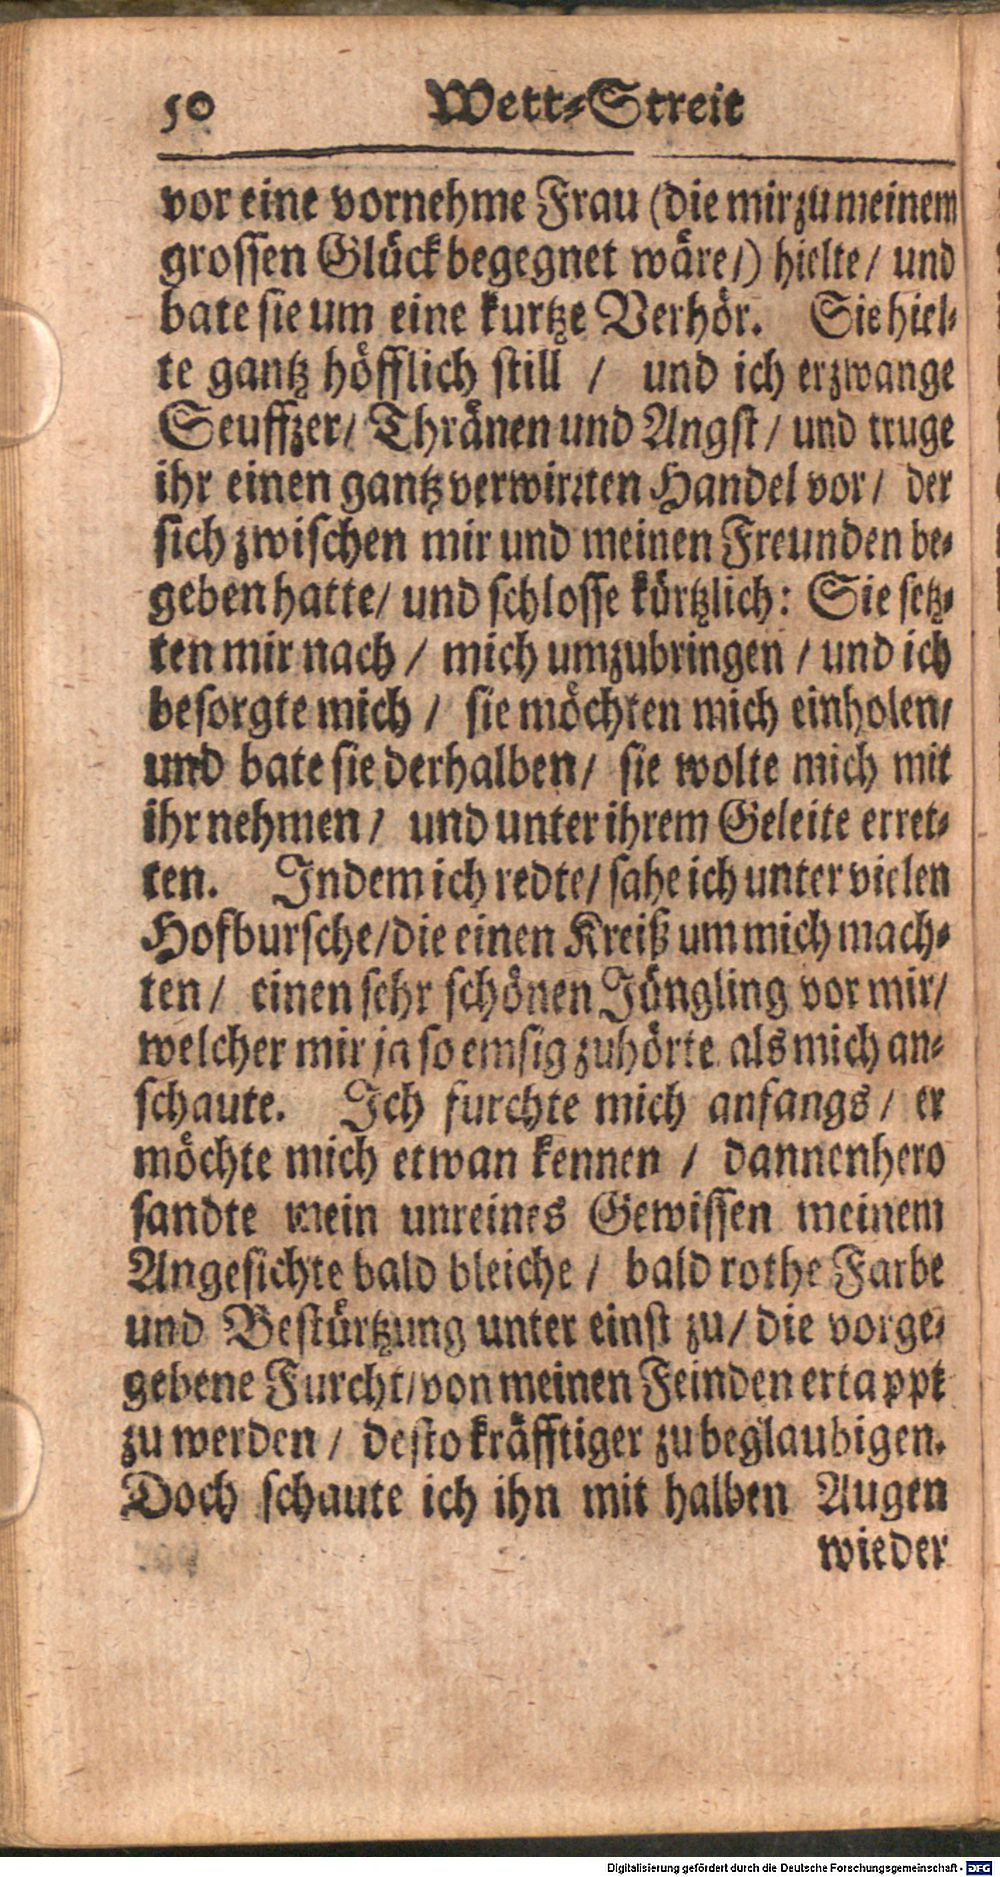 50 Wett-Streit
vor eine vornehme Frau (die mir zu meinem
grossen Glück begegnet wäre/) hielte/ und
bate sie um eine kurtze Verhör. Sie hiel-
te gantz höfflich still / und ich erzwange
Seuffzer/ Thränen und Angst/ und truge
ihr einen gantz verwirrten Handel vor/ der
sich zwischen mir und meinen Freunden be-
geben hatte/ und schlosse kürtzlich: Sie setz-
ten mir nach / mich umzubringen / und ich
besorgte mich / sie möchten mich einholen/
und bate sie derhalben/ sie wolte mich mit
ihr nehmen / und unter ihrem Geleite erret-
ten. Indem ich redte/ sahe ich unter vielen
Hofbursche/die einen Kreiß um mich mach-
ten / einen sehr schönen Jüngling vor mir/
welcher mir ja so emsig zuhörte als mich an-
schaute. Ich furchte mich anfangs / er
möchte mich etwan kennen / dannenhero
sandte mein unreines Gewissen meinem
Angesichte bald bleiche / bald rothe Farbe
und Bestürtzung unter einst zu/ die vorge-
gebene Furcht/von meinen Feinden ertappt
zu werden / desto kräfftiger zu beglaubigen.
Doch schaute ich ihn mit halben Augen
wieder
Digitalisierung gefördert durch die Deutsche Forschungsgemeinschaft - DFG